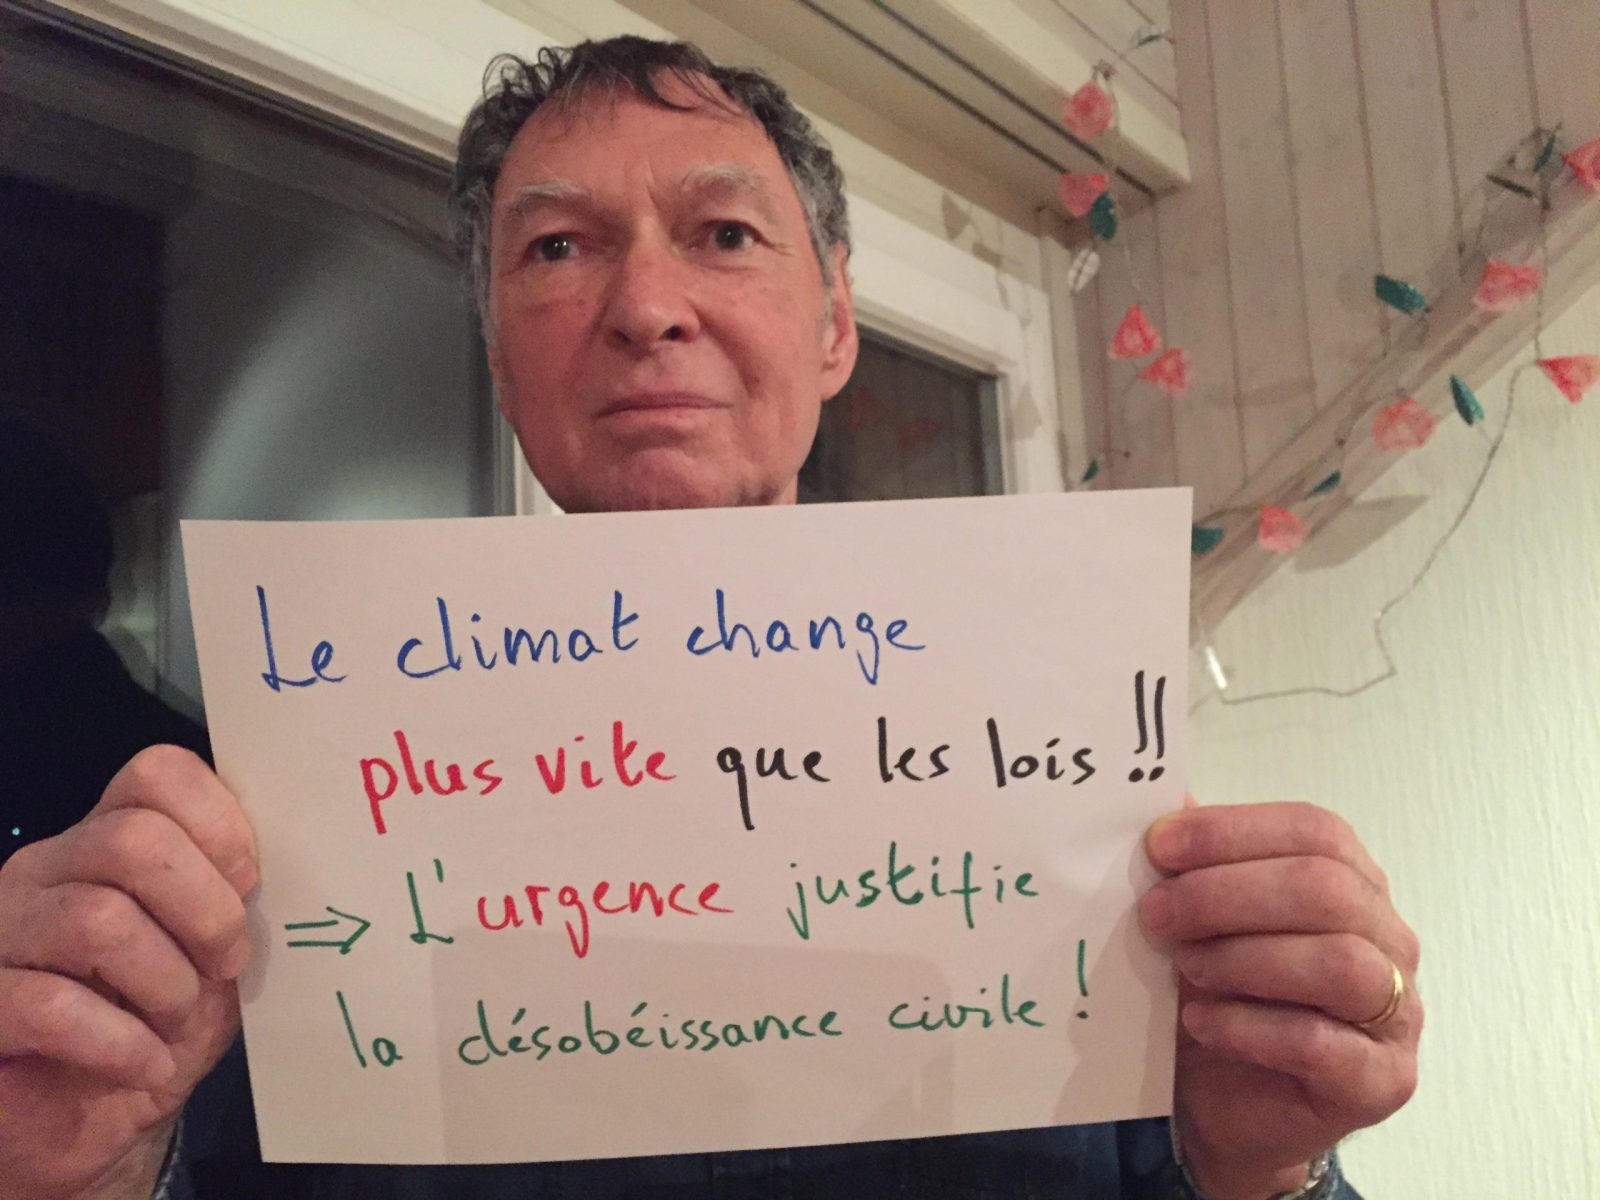 Le climat change
plus vite que les lois !!
⇒ L'urgence justifie
la désobéissance civile !